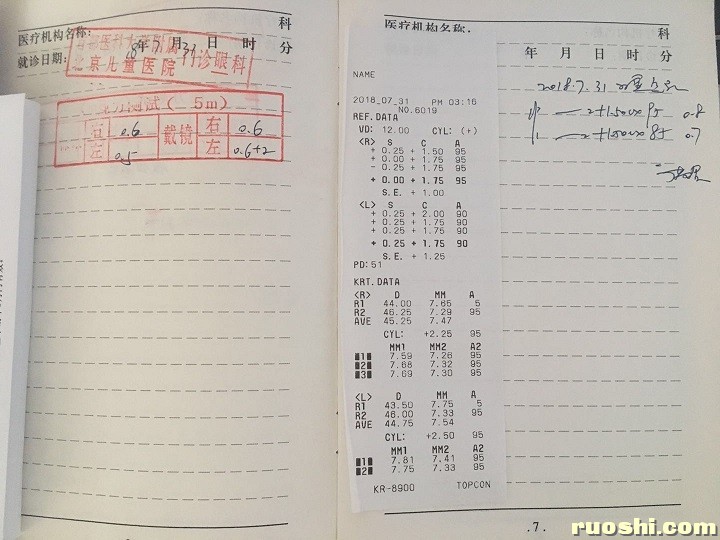 医疗机构名称: 科
就诊日期: 18年7月31日 时 分
北京儿童医院 门诊眼科
视力测试( 5m)
右 0.6 戴镜 右 0.6
左 0.5 左 0.6+2
医疗机构名称: 科
年 月 日 时 分
NAME
2018_07_31 PM 03:16
NO.6019
REF.DATA
VD: 12.00 CYL: (+)
<R> S C A
+ 0.25 + 1.50 95
+ 0.00 + 1.75 95
- 0.25 + 1.75 95
+ 0.00 + 1.75 95
S.E. + 1.00
<L> S C A
+ 0.25 + 2.00 90
+ 0.25 + 1.75 90
+ 0.25 + 1.75 90
+ 0.25 + 1.75 90
S.E. + 1.25
PD: 51
KRT.DATA
<R> D MM A
R1 44.00 7.65 5
R2 46.25 7.29 95
AVE 45.25 7.47
CYL: +2.25 95
MM1 MM2 A2
1 7.59 7.26 95
2 7.68 7.32 95
3 7.69 7.30 95
<L> D MM A
R1 43.50 7.75 5
R2 46.00 7.33 95
AVE 44.75 7.54
CYL: +2.50 95
MM1 MM2 A2
1 7.81 7.41 95
2 7.75 7.33 95
KR-8900 TOPCON
2018.7.31
0.8
0.7
.7.
ruoshi.com